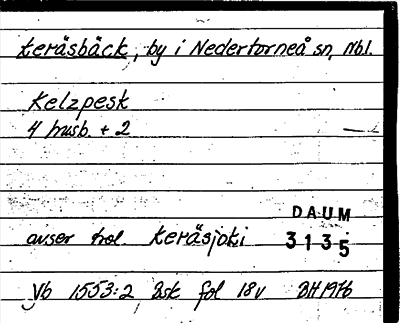 Keräsbäck, by i Nedertorneå sn, Nbl.
Kelzpesk
4 husb. + 2 —
DAUM
avser trol. Keräsjoki 3135
Vb 1553:2, Bsk fol 18v BH 1976